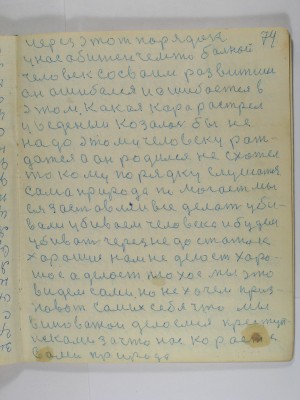 через этот порядок 74
у нас обижен чем то больной
человек со своим развитии
он ошибался и ошибается в
этом, Какая кара растрел
цъедены Козалос бы не
надо этому человеку раж-
датся а он родился не схотел
то кому порядку слушатся
сама природа помогает мы
вя заставлили все делать уби-
вали убиваем человека и будем
убивать через недостаток
хароших нам не делают харо-
шое а делоет плохое мы это
видем сами, но не хочем приз-
новать самих себя что мы
виноватои делоемся преступ-
никами за что нас кораеть
вами природа